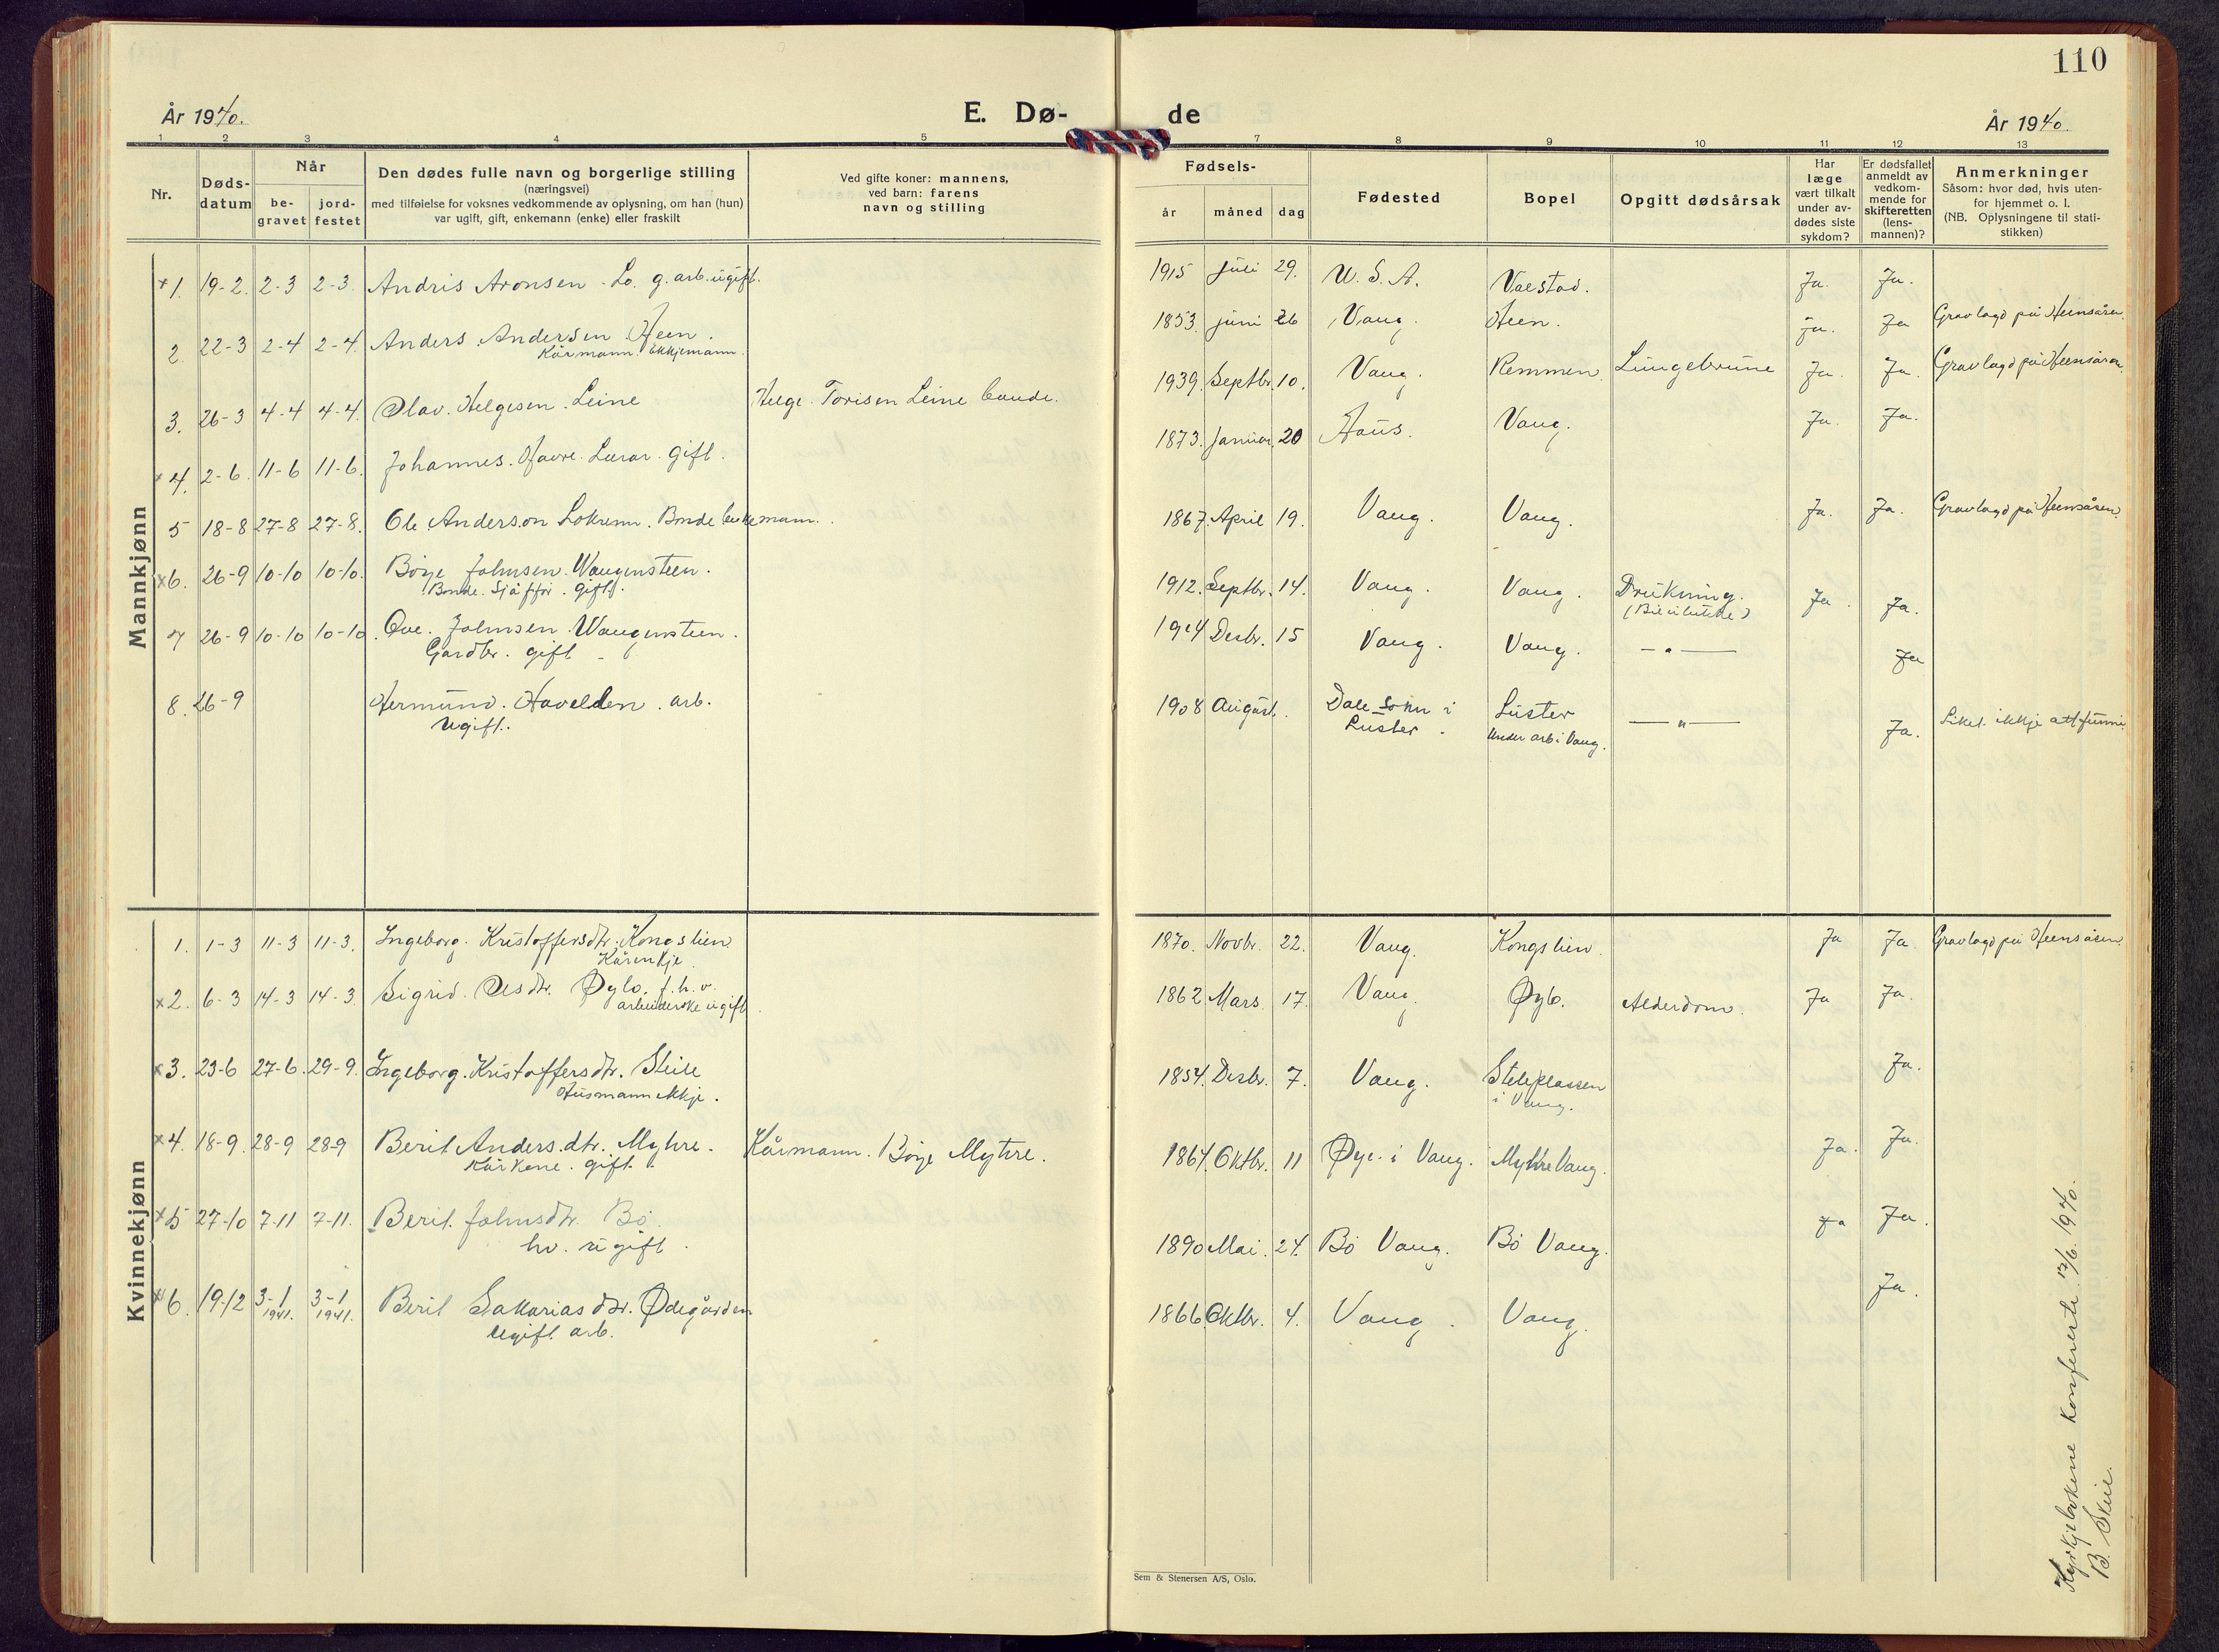 110
År 1940.
E. Dø-
de
År 1940.
1 2 3 4 5 7 8 9 10 11 12 13
Nr.
Døds-
datum
Når
be-
gravet
jord-
festet
Den dødes fulle navn og borgerlige stilling
(næringsvei)
med tilføielse for voksnes vedkommende av oplysning, om han (hun)
var ugift, gift, enkemann (enke) eller fraskilt
Ved gifte koner: mannens,
ved barn: farens
navn og stilling
Fødsels-
år måned dag
Fødested
Bopel
Opgitt dødsårsak
Har
læge
vært tilkalt
under av-
dødes siste
sykdom?
Er dødsfallet
anmeldt av
vedkom-
mende for
skifteretten
(lens-
mannen)?
Anmerkninger
Såsom: hvor død, hvis uten-
for hjemmet o. l.
(NB. Oplysningene til stati-
stikken)
Mannkjønn
×1. 19-2. 2-3 2-3. Andris Aronsen Lo. g. arb. ugift. 1915 juli 29. U.S.A. Valstad. Ja. Ja.
2. 22-3 2-4 2-4. Anders Andersen Heen. 1853. juni 26 Vang. Heen. Ja. Ja Gravlagd på Heensåsen.
Kårmann. Ekkjemann.
3. 26-3 4-4 4-4. Olav. Helgesen. Leine Helge Torisen Leine bonde. 1939. Septbr. 10. Vang. Remmen. Lungebrune Ja. Ja. Gravlagd på Heensåsen
×4. 2-6. 11-6 11-6. Johannes. Havre. Lærar. gift. 1873. Januar 20 Haus. Vang. Ja. Ja.
5 18-8 27-8 27-8. Ole Anderson Lokrenn. Bonde. Enkemann. 1867. April 19. Vang. Vang. Ja. Ja. Gravlagd på Heensåsen.
×6. 26-9 10-10 10-10. Børje Johnsen. Wangensteen. 1912. Septbr. 14. Vang. Vang. Drukning. Ja. Ja.
Bonde. Sjåffør. gift.
(Bilulukke)
7 26-9 10-10 10-10. Ove. Johnsen. Wangensteen. 1914 Desbr. 15 Vang. Vang. —"— Ja
Gardbr. gift
8. 26-9 Hermund. Havelden. arb. 1908 August. Dale sokn i Luster —"— Ja. Liket ikkje attfunne.
Ugift.
Luster.
Under arb i Vang.
Kvinnekjønn
1. 1-3 11-3 11-3. Ingeborg. Kristoffersdtr. Kongslien 1870. Novbr. 22. Vang. Kongslien. Ja Ja Gravlagd på Heensåsen.
Kårenkje
×2. 6-3 14-3 14-3. Sigrid. Olsdtr. Øylo. f.h.v. 1862 Mars. 17. Vang. Øylo. Alderdom. Ja Ja.
arbeiderske ugift.
×3. 23-6 27-6. 29-9. Ingeborg. Kristoffersdtr. Steile 1854. Desbr. 7. Vang. Steleplassen Ja.
Husmannekkje.
i Vang.
×4. 18-9. 28-9 28-9 Berit Anders.dtr. Myhre. Kårmann. Børje Myhre. 1864. Oktbr. 11 Øye i Vang. Myhre Vang. Ja. Ja.
Kårkone. gift.
×5 27-10 7-11 7-11. Berit Johnsdtr. Bø. 1890 Mai. 24. Bø Vang. Bø Vang. Ja Ja.
hv. ugift.
×6. 19-12 3-1 1941. 3-1 1941. Berit Sakariasdtr. Ødegården 1866 Oktbr. 4. Vang. Vang. Ja.
Ugift arb.
Kyrkjebøkene konfererte 12/6. 1940.
B. Skeie.
Sem & Stenersen A/S, Oslo.